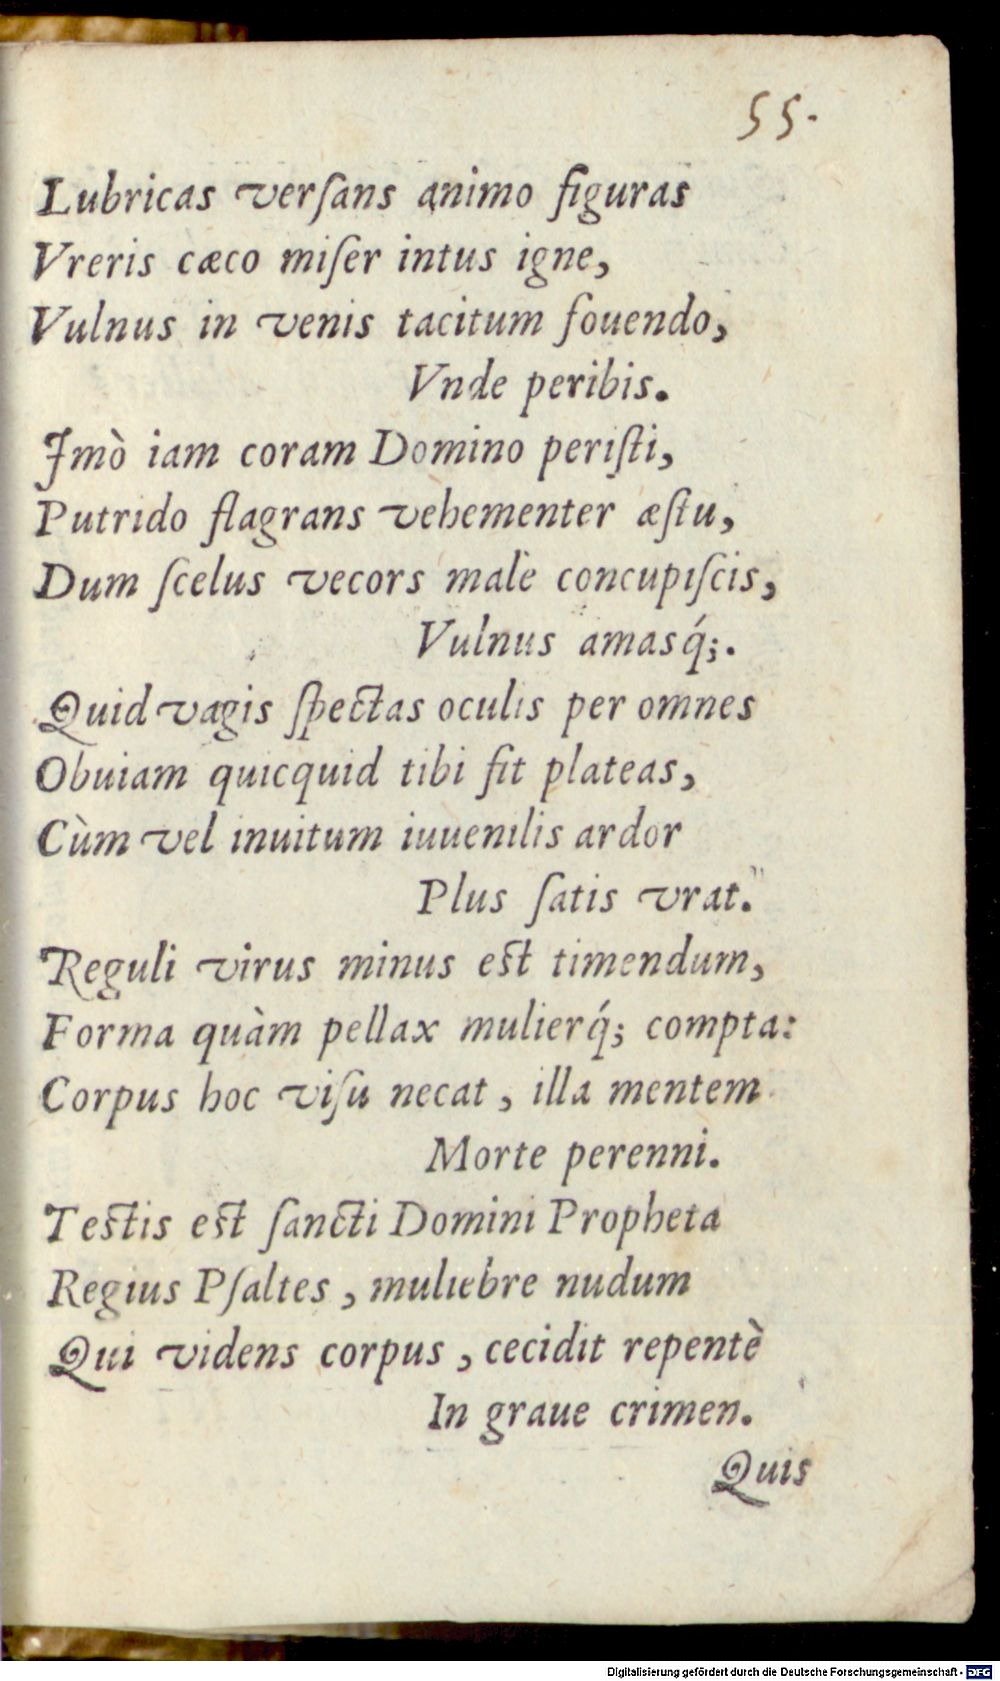 55.
Lubricas verſans animo figuras
Vreris cæco miſer intus igne,
Vulnus in venis tacitum fouendo,
Vnde peribis.
Imò iam coram Domino periſti,
Putrido flagrans vehementer æſtu,
Dum ſcelus vecors malè concupiſcis,
Vulnus amasq́;.
Quid vagis ſpectas oculis per omnes
Obuiam quicquid tibi fit plateas,
Cùm vel inuitum iuuenilis ardor
Plus ſatis vrat.
Reguli virus minus eſt timendum,
Forma quàm pellax mulierq́; compta:
Corpus hoc viſu necat, illa mentem
Morte perenni.
Teſtis eſt ſancti Domini Propheta
Regius Pſaltes, muliebre nudum
Qui videns corpus, cecidit repentè
In graue crimen.
Quis
Digitalisierung gefördert durch die Deutsche Forschungsgemeinschaft - DFG